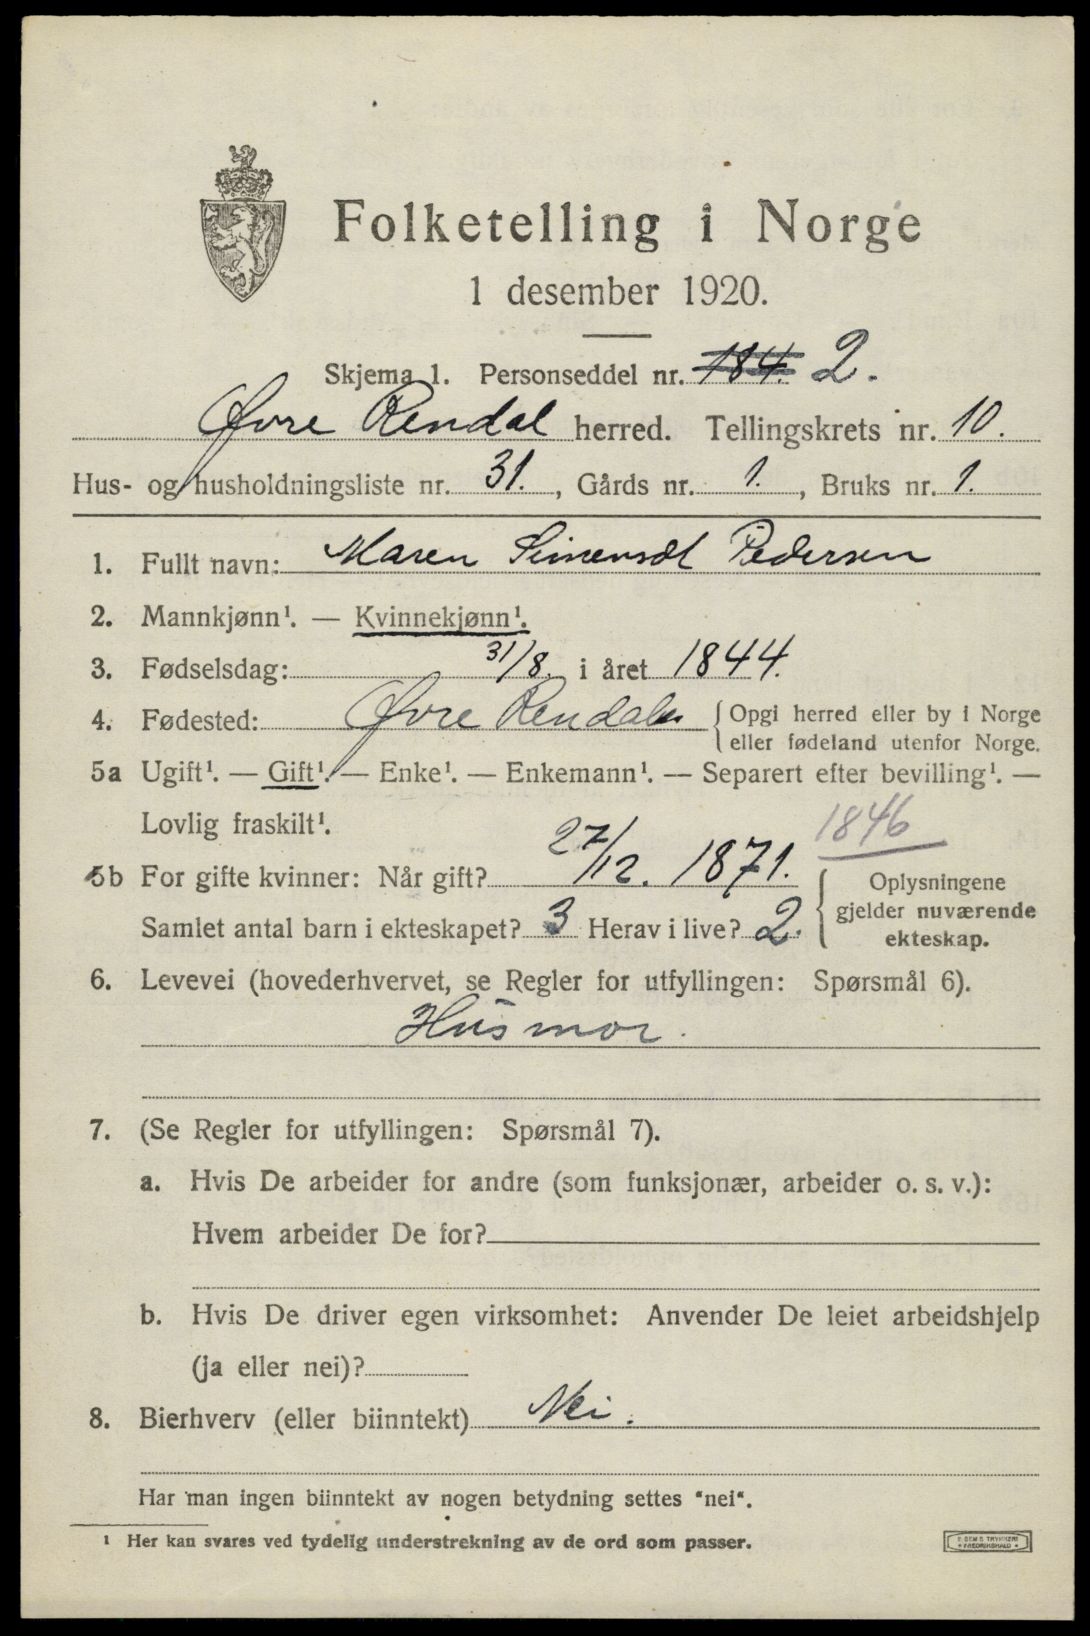 Folketelling i Norge
1 desember 1920.
Skjema 1. Personseddel nr. 184. 2.
Øvre Rendal herred. Tellingskrets nr. 10.
Hus- og husholdningsliste nr. 31. , Gårds nr. 1. , Bruks nr. 1.
1. Fullt navn: Maren Simensdt Pedersen
2. Mannkjønn¹. — Kvinnekjønn¹.
3. Fødselsdag: 31/8. i året 1844.
4. Fødested: Øvre Rendalen { Opgi herred eller by i Norge
eller fødeland utenfor Norge.
5a Ugift¹. — Gift¹. — Enke¹. — Enkemann¹. — Separert efter bevilling¹. —
Lovlig fraskilt¹.
1846
5b For gifte kvinner: Når gift? 27/12. 1871. { Oplysningene
gjelder nuværende
Samlet antal barn i ekteskapet? 3 Herav i live? 2.
ekteskap.
6. Levevei (hovederhvervet, se Regler for utfyllingen: Spørsmål 6).
Husmor.
7. (Se Regler for utfyllingen: Spørsmål 7).
a. Hvis De arbeider for andre (som funksjonær, arbeider o. s. v.):
Hvem arbeider De for?
b. Hvis De driver egen virksomhet: Anvender De leiet arbeidshjelp
(ja eller nei)?
8. Bierhverv (eller biinntekt) Nei.
Har man ingen biinntekt av nogen betydning settes "nei".
¹ Her kan svares ved tydelig understrekning av de ord som passer.